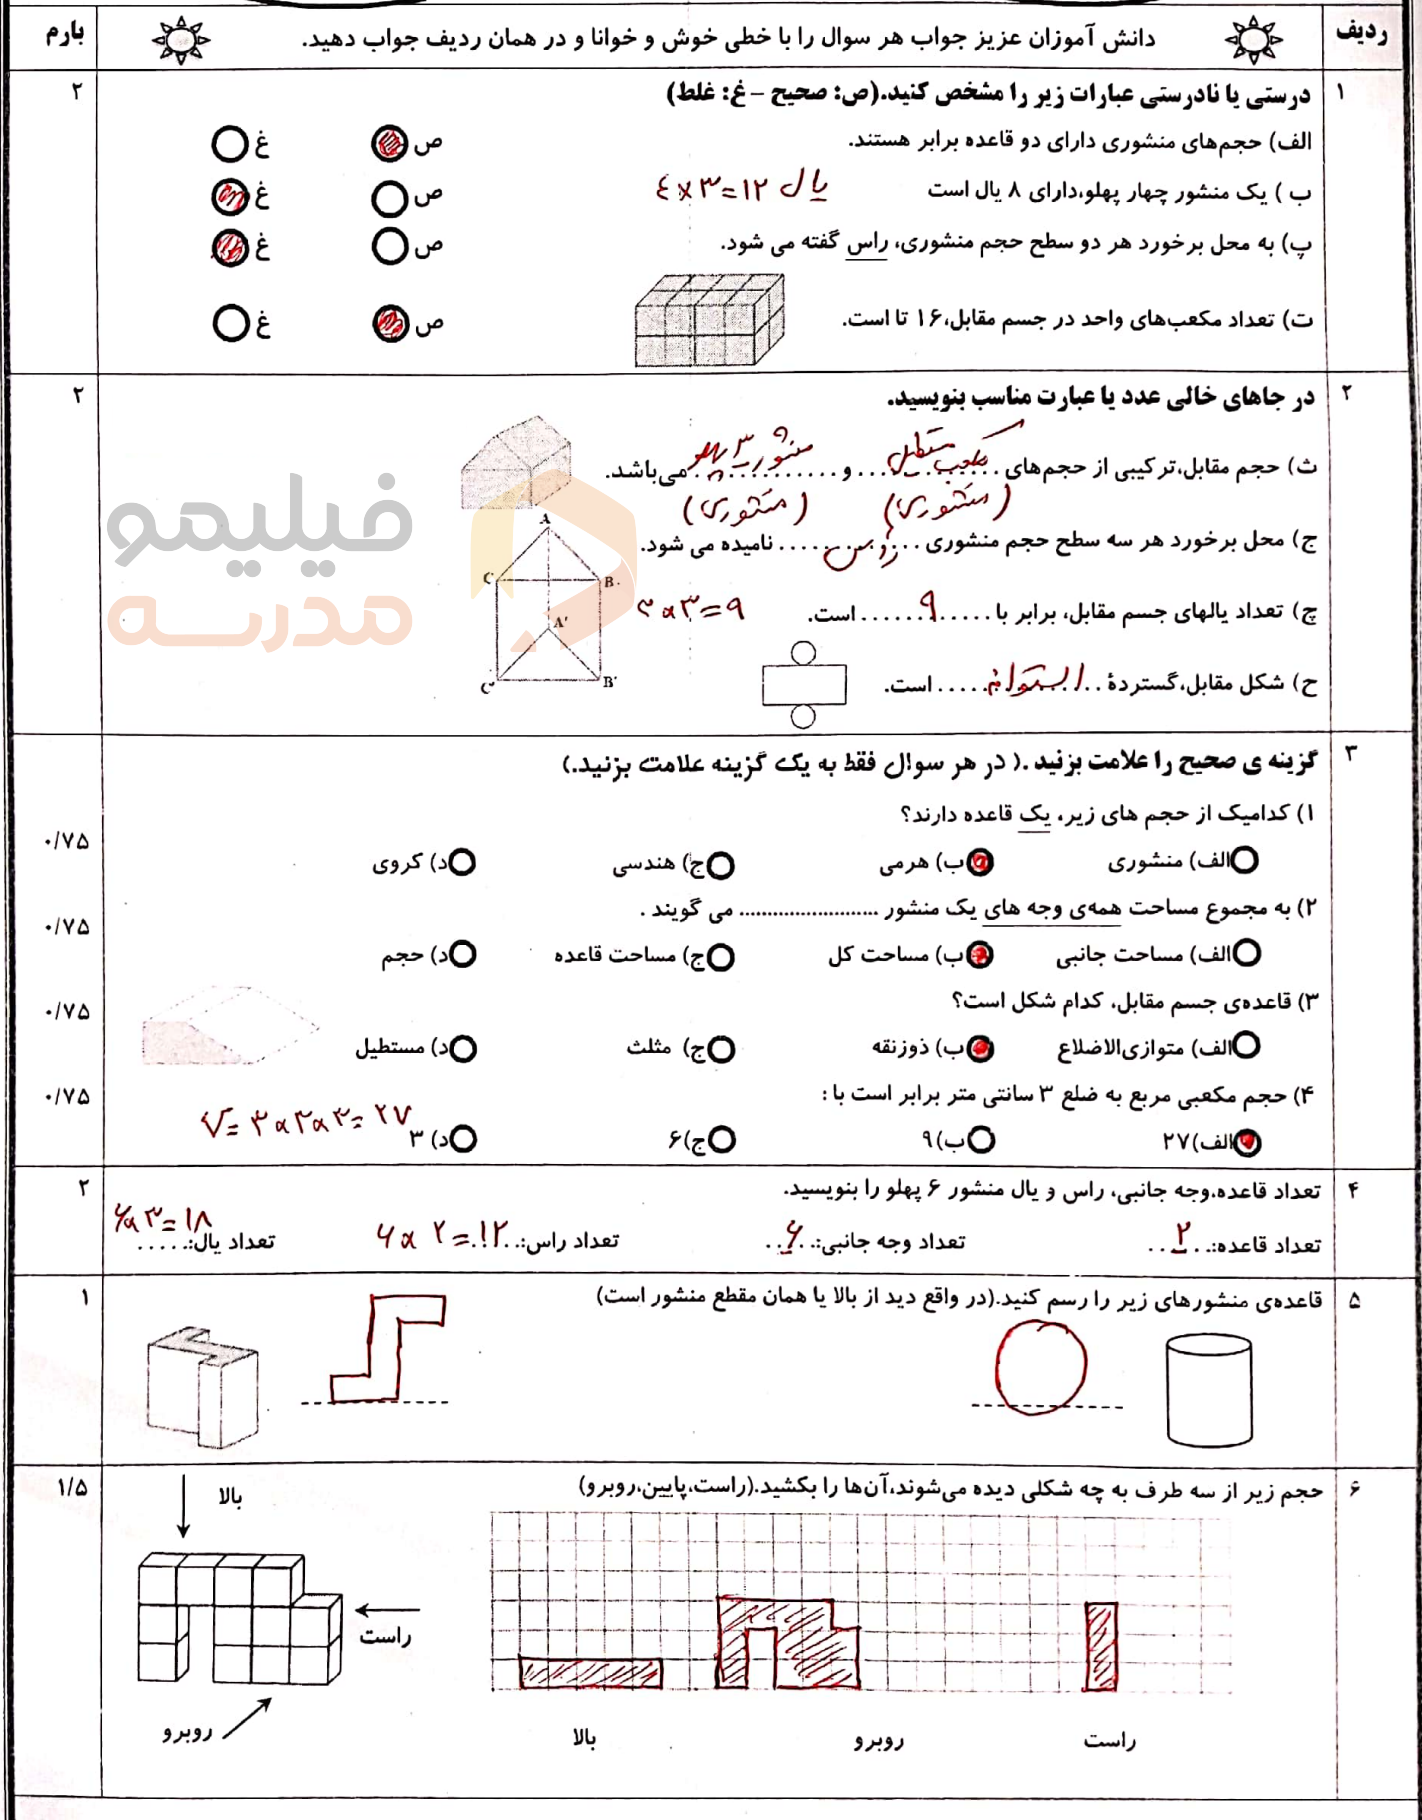 ردیف
دانش آموزان عزیز جواب هر سوال را با خطی خوش و خوانا و در همان ردیف جواب دهید.
بارم
۱
درستی یا نادرستی عبارات زیر را مشخص کنید.(ص: صحیح – غ: غلط)
۲
الف) حجم‌های منشوری دارای دو قاعده برابر هستند. ص غ
ب ) یک منشور چهار پهلو،دارای ۸ یال است ۴×۳=۱۲ یال ص غ
پ) به محل برخورد هر دو سطح حجم منشوری، راس گفته می شود. ص غ
ت) تعداد مکعب‌های واحد در جسم مقابل،۱۶ تا است. ص غ
۲
در جاهای خالی عدد یا عبارت مناسب بنویسید.
۲
ث) حجم مقابل،ترکیبی از حجم‌های مکعب مستطیل و منشور ۳ پهلو می‌باشد.
(منشوری) (منشوری)
ج) محل برخورد هر سه سطح حجم منشوری ..... رؤس ..... نامیده می شود.
چ) تعداد یالهای جسم مقابل، برابر با ..... ۹ ..... است. ۳×۳=۹
ح) شکل مقابل،گستردهٔ ..... استوانه ..... است.
A
C B
A'
C' B'
فیلیمو
مدرسه
۳
گزینه ی صحیح را علامت بزنید .( در هر سوال فقط به یک گزینه علامت بزنید.)
۱) کدامیک از حجم های زیر، یک قاعده دارند؟
۰/۷۵
الف) منشوری ب) هرمی ج) هندسی د) کروی
۲) به مجموع مساحت همه‌ی وجه های یک منشور ........................ می گویند .
۰/۷۵
الف) مساحت جانبی ب) مساحت کل ج) مساحت قاعده د) حجم
۳) قاعده‌ی جسم مقابل، کدام شکل است؟
۰/۷۵
الف) متوازی‌الاضلاع ب) ذوزنقه ج) مثلث د) مستطیل
۴) حجم مکعبی مربع به ضلع ۳ سانتی متر برابر است با :
۰/۷۵
V= ۳×۳×۳=۲۷
الف)۲۷ ب)۹ ج)۶ د) ۳
۴
تعداد قاعده،وجه جانبی، راس و یال منشور ۶ پهلو را بنویسید.
۲
تعداد قاعده:..۲.. تعداد وجه جانبی:..۶.. تعداد راس:.. ۶×۲=۱۲ تعداد یال:..... ۶×۳=۱۸
۵
قاعده‌ی منشورهای زیر را رسم کنید.(در واقع دید از بالا یا همان مقطع منشور است)
۱
۶
حجم زیر از سه طرف به چه شکلی دیده می‌شوند،آن‌ها را بکشید.(راست،پایین،روبرو)
۱/۵
بالا
راست
روبرو
راست روبرو بالا